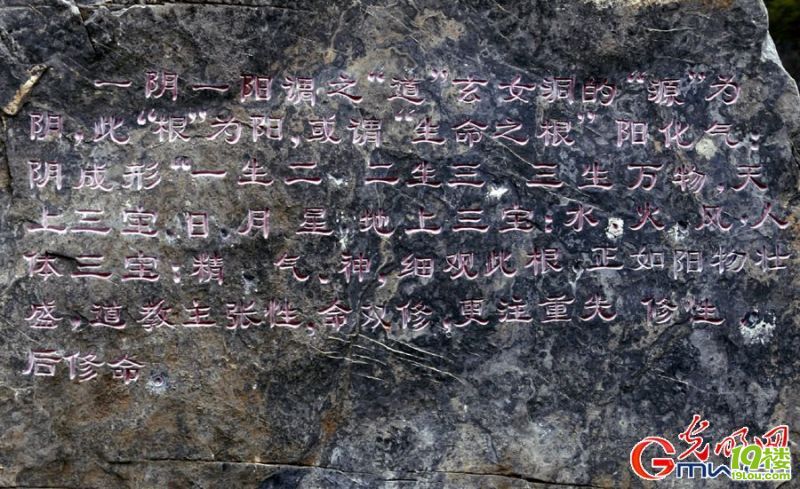 一阴一阳谓之“道”玄女洞的“源”为
阴,此“根”为阳,或谓“生命之根” 阳化气;
阴成形“一生二 二生三 三生万物,天
上三宝:日、月、星;地上三宝:水、火、风;人
体三宝:精、气、神,细观此根,正如阳物壮
盛,道教主张性、命双修,更注重先 修性
后修命。
光明网
19楼
19lou.com